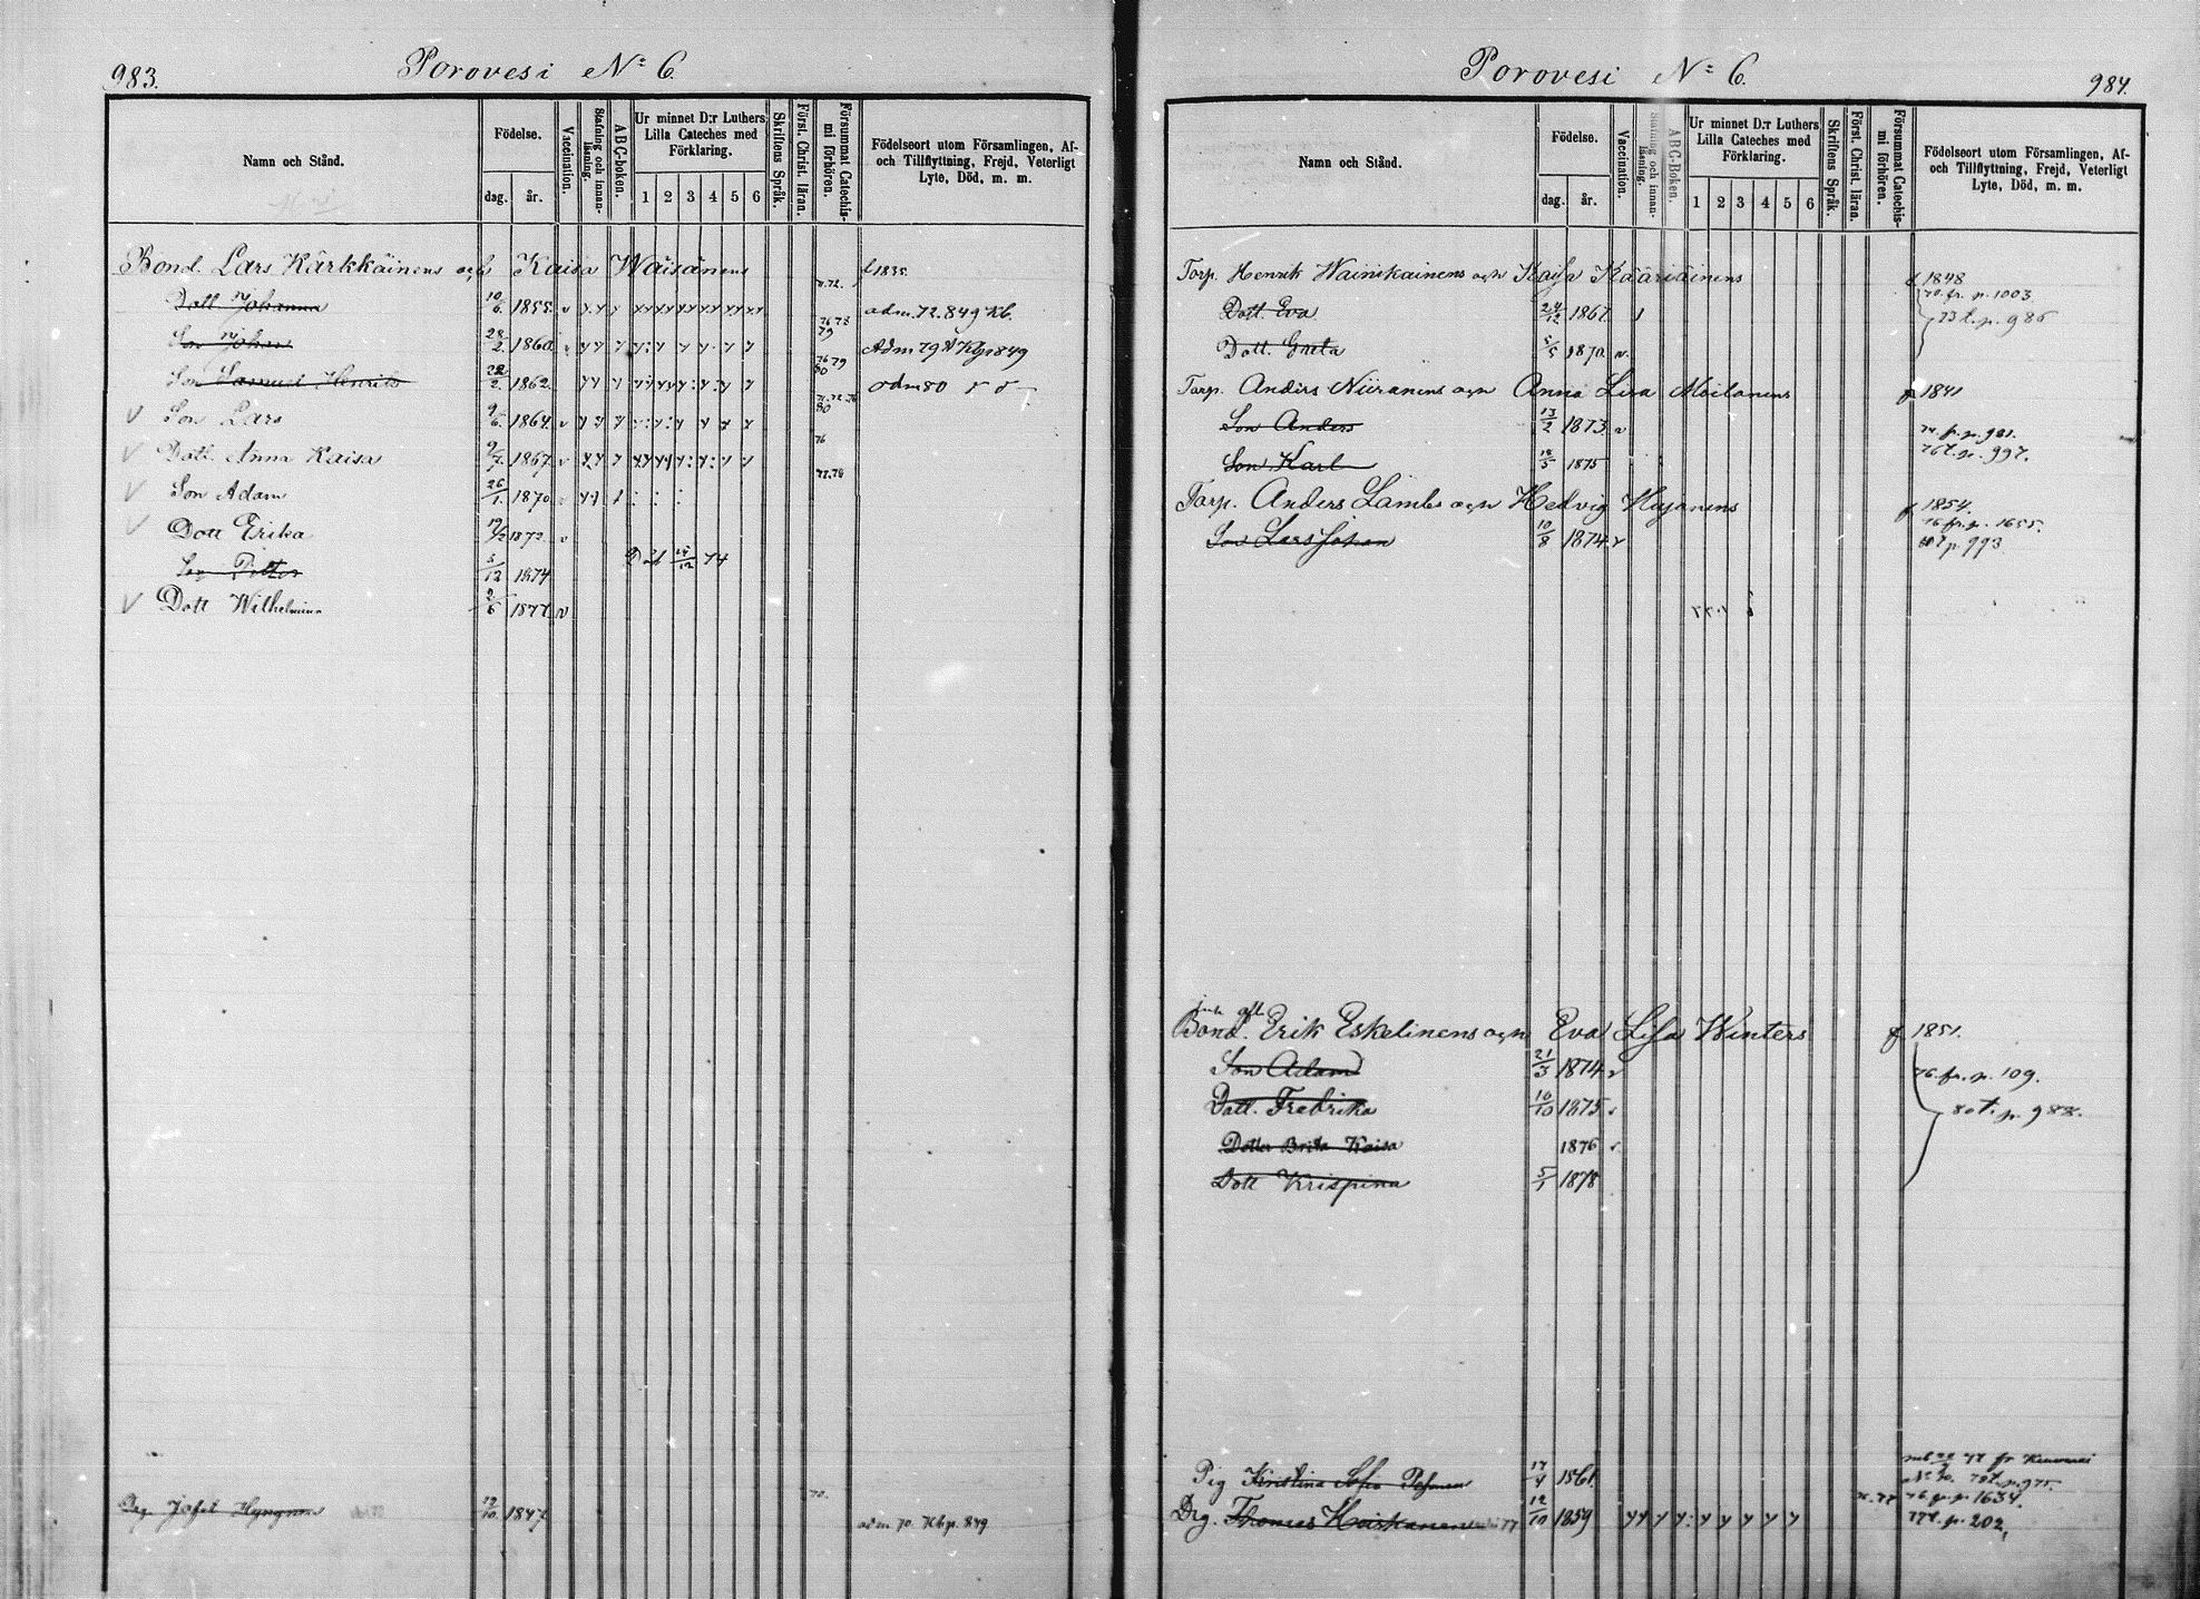 983.
Porovesi No 6.
Namn och Stånd.
Födelse.
dag.
år.
Vaccination.
Stafning och innan-läsning.
ABC-boken.
Ur minnet D:r Luthers
Lilla Cateches med
Förklaring.
1 2 3 4 5 6
Skriftens Språk.
Först. Christ. läran.
Försummat Catechis-
mi förhören.
Födelseort utom Församlingen, Af-
och Tillflyttning, Frejd, Veterligt
Lyte, Död, m. m.
Bond. Lars Kärkkäinens och Kaisa Wäisänens f 1835.
Dott Johanna 10/6 1855. v 72. adm. 72. 849 Kb.
Son Johan 28/2 1860. 76 78 79 Adm 79 Kbp 849
Son Samuel Henrik 22/2 1862. 76 79 80 adm 80
V Son Lars 9/6 1864. v 80
V Dott. Anna Kaisa 9/7 1867. v 76
V Son Adam 26/1 1870.
V Dott Erika 1872. v
Son Petter 5/12 1874 Död 12 74
V Dott Wilhelmina 2/6 1877. v
Drg. Jafet 12/10 1847. 70. adm 70. Kbp. 849
Porovesi No 6.
984.
Namn och Stånd.
Födelse.
dag.
år.
Vaccination.
Stafning och innan-läsning.
ABC-Boken.
Ur minnet D:r Luthers
Lilla Cateches med
Förklaring.
1 2 3 4 5 6
Skriftens Språk.
Först. Christ. läran.
Försummat Catechis-
mi förhören.
Födelseort utom Församlingen, Af-
och Tillflyttning, Frejd, Veterligt
Lyte, Död, m. m.
Torp. Henrik Wainikainens och Kaisa Kääriäinens f 1848
70. fr. p. 1003
Dott. Eva 24/12 1867. 73 t. p. 986
Dott. Greta 5/5 1870. v.
Torp. Anders Niiranens och Anna Lisa Moilanens f 1841
Son Anders 13/2 1873. v 74. fr. p. 981.
Son Karl 18/5 1875 76 t. p. 997.
Torp. Anders Lämbs och Hedvig Hujanens f 1854.
76 fr. p. 1655.
Son Lars Johan 10/8 1874. v t p. 993
Bond. Erik Eskelinens och Eva Lisa Winters f 1851.
Son Adam 21/3 1874. v 76. fr. p. 109.
Dott. Fredrika 16/10 1875. v 80 t. p. 988.
Dotter Brita Kaisa 1876 v
Dott Krispina 5/1 1878
Pig Kristina Sofia 17/4 1861. No 30. 78 t. p. 975.
76 fr. p. 1634.
Drg. Thomas Heiskanen 12/10 1859 77 t. p. 202,